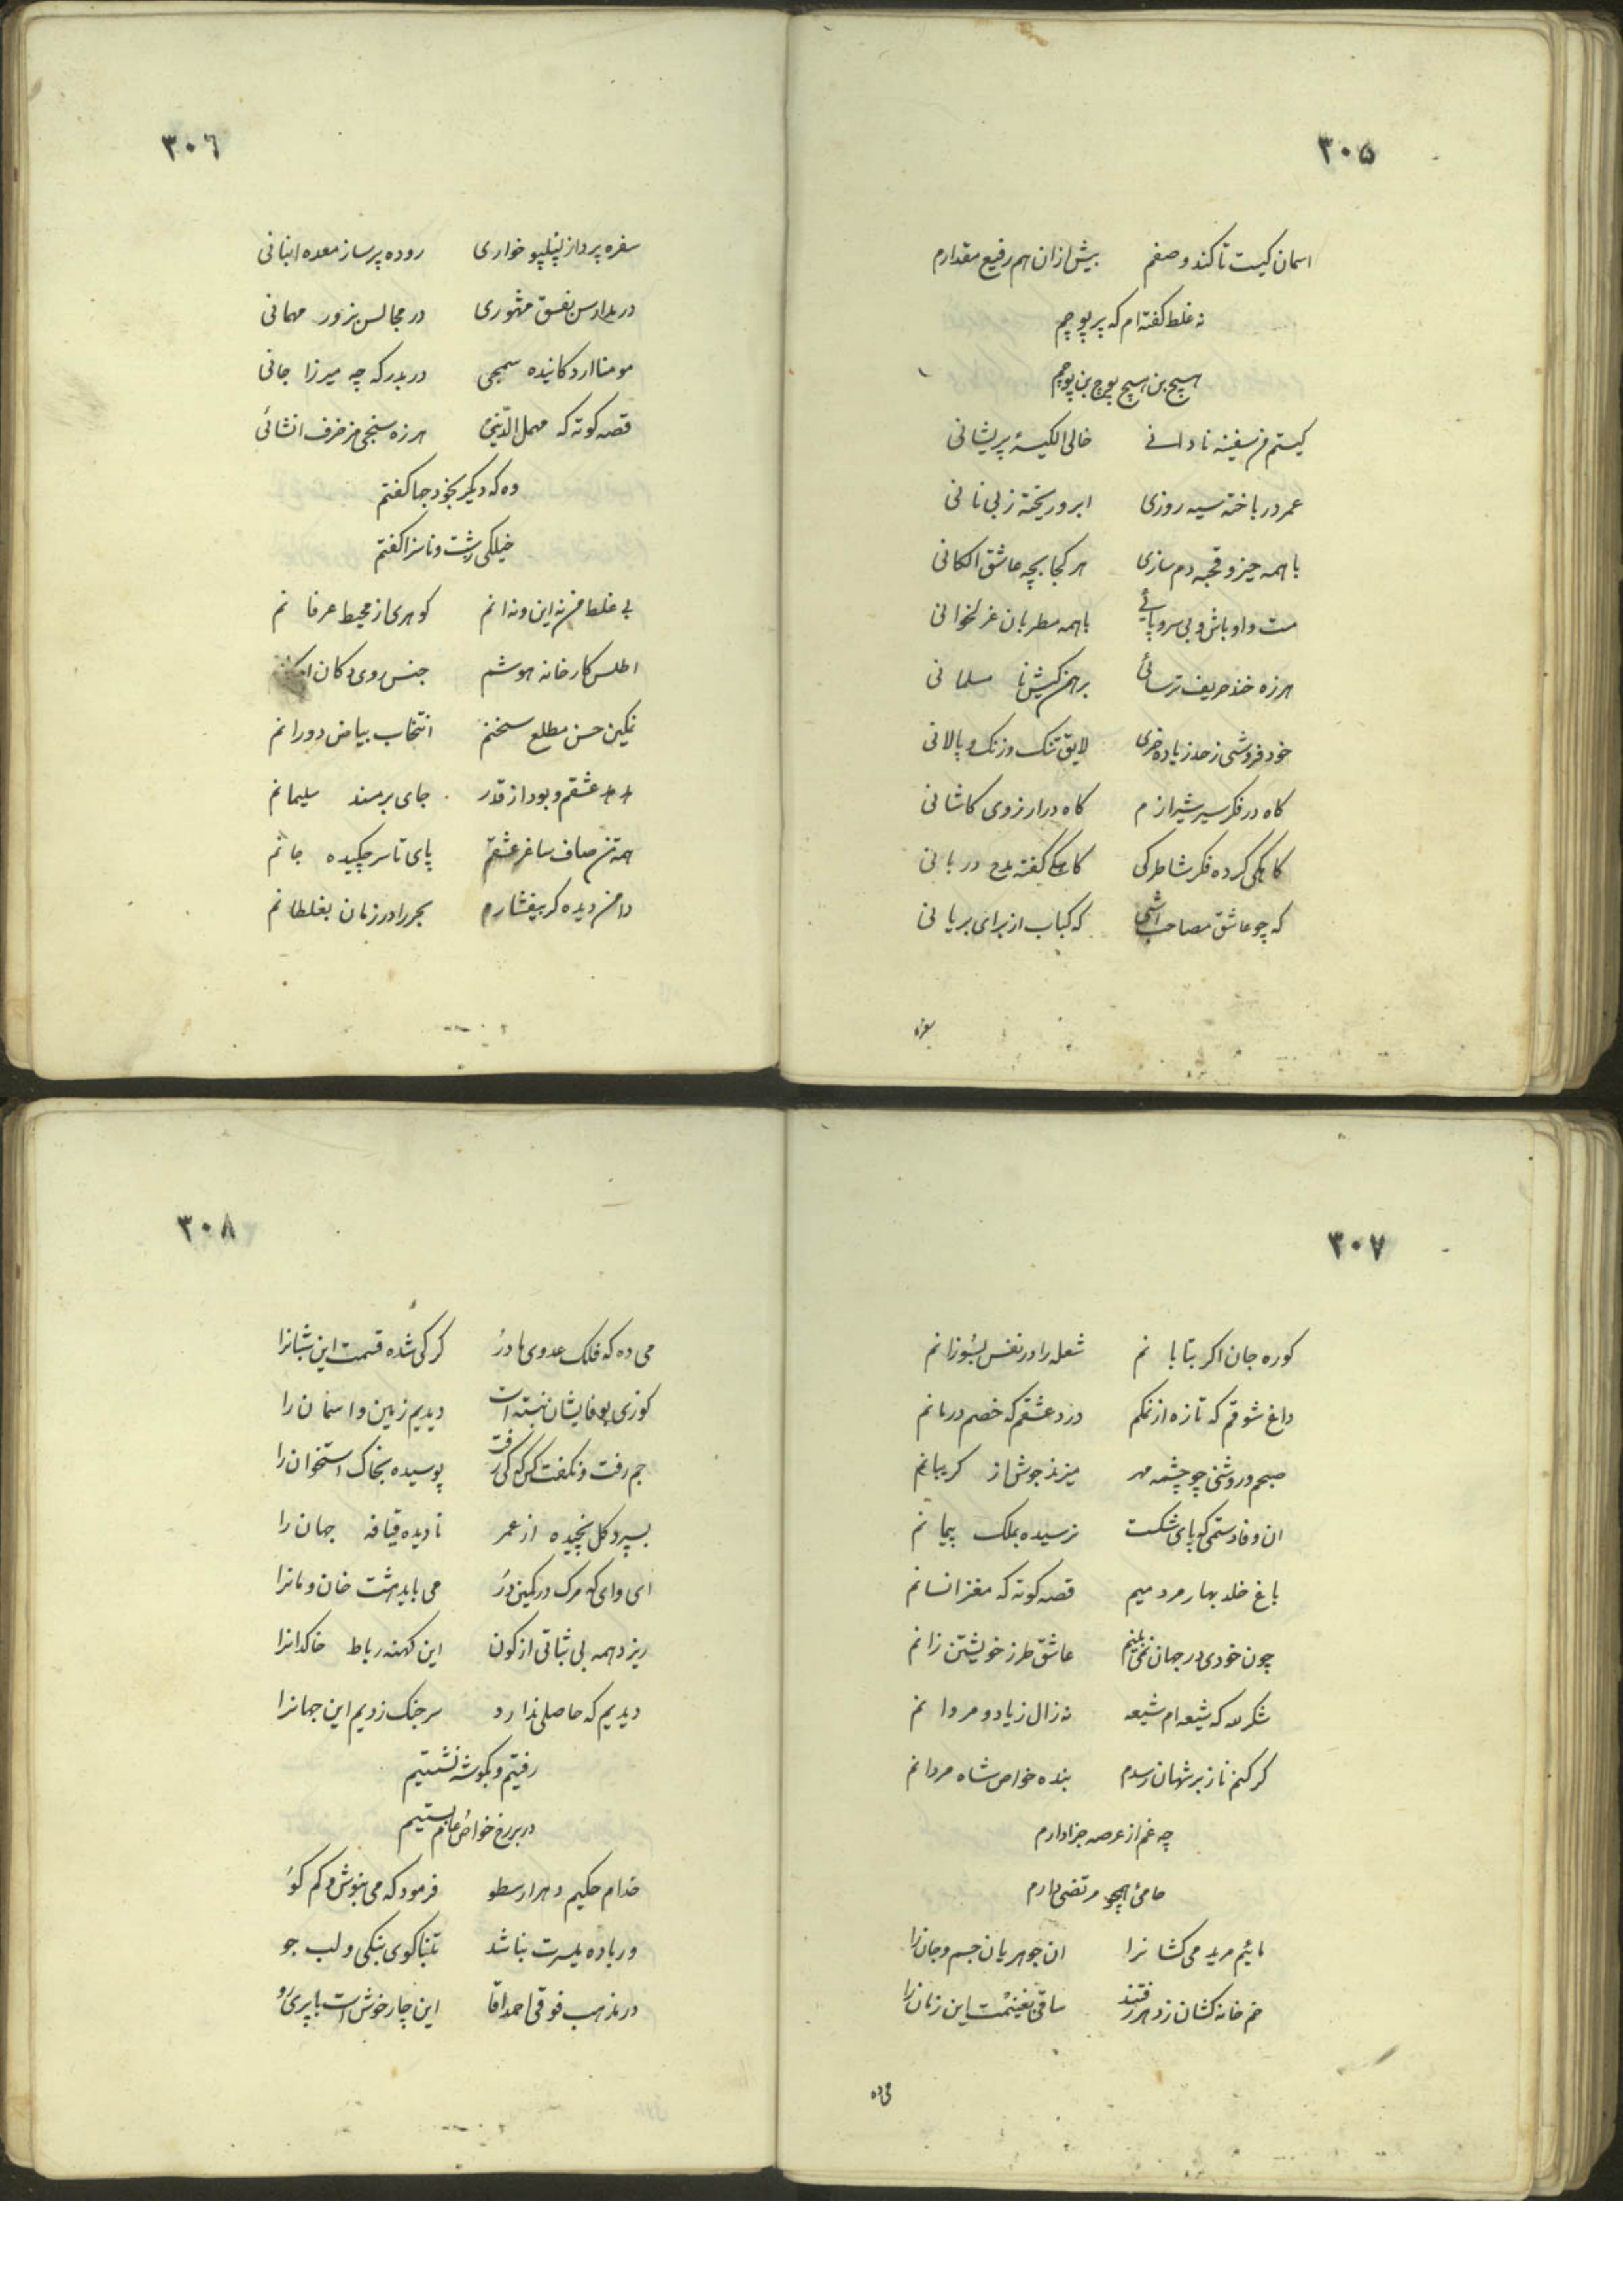 ۳۰۵
اسمان کیست تا کند وصفم بیش ازان هم رفیع مقدارم
نه غلط کفته ام که پر پوچم
هیچ بن هیچ پوچ بن پوچم
کیستم من سفینه نادانی خالی الکیسهٔ پریشانی
عمر در باخته سیه روزی ابرو ریخته ز بی نانی
با همه حیز و قحبه دم سازی هر کجا بچه عاشق الکانی
مست و اوباش و بی سر و پائی با همه مطربان غزلخوانی
هرزه خند حریف ترسائی برهمن کیش نا مسلمانی
خود فروشی ز حد زیاده خری لایق تنک و زنک و پالانی
کاه در فکر سیر شیرازم کاه در ارزوی کاشانی
کاهکی کرده فکر شاطرکی کاهکی کفته مدح دربانی
که چو عاشق مصاحب اشی که کباب از برای بریانی
سفره
۳۰٦
سفره پرداز پنلپو خواری روده پرساز معده انبانی
در مدارس بفسق مشهوری در مجالس بزور مهمانی
مومنا ارد کانیده سمجی در بدر که چه میرزا جانی
قصه کوته که مهمل الدینی هرزه سنجی مزخرف انشائی
وه که دیکر بخود جها کفتم
خیلکی زشت و ناسزا کفتم
بی غلط من نه این و نه انم کوهری از محیط عرفانم
اطلس کارخانه هوشم جنس روی دکان
نمکین حسن مطلع سخنم انتخاب بیاض دورانم
عشقم و بود از قدر جای بر مسند سلیمانم
همه تن صاف ساغر عشقم پای تا سر چکیده جانم
دامن دیده کر بیفشارم بحر را در زمان بغلطانم
۳۰۷
کوره جان اکر بتابانم شعله را در نفس بسوزانم
داغ شوقم که تازه از نمکم درد عشقم که خصم درمانم
صبحم و روشنی چو چشمه مهر میزند جوش از کریبانم
ان وفا دستمی کو پای شکست نرسیده بملک پیمانم
باغ خلد بهار مردمیم قصه کوته که مغز انسانم
چون خودی در جهان نمی بینم عاشق طرز خویشتن زانم
شکر لله که شیعه ام شیعه نه زال زیاد و مروانم
کر کنم ناز بر شهان رسدم بنده خواص شاه مردانم
چه غم از عرصه جزا دارم
حامیٔ همچو مرتضی دارم
مائیم مرید می کشانرا ان جوهریان جسم و جان را
خم خانه کشان ز دهر رفتند ساقی بغنیمت این زمان را
می ده
۳۰۸
می ده که فلک عدوی ما در کرکی شده قسمت این شبانرا
کوزی بوفایشان نبسته است دیدیم زمین و اسمان را
جم رفت و نکفت کس که کی رفت پوسیده بخاک استخوان را
بسپرد کل نچیده از عمر نادیده قیافه جهان را
ای وای که مرک در کمین در می باید هشت خان و مانرا
ریزد همه بی ثباتی از کون این کهنه رباط خاکدانرا
دیدیم که حاصلی ندارد سر جنک زدیم این جهانرا
رفتیم و بکوشه نشستیم
در بر رخ خواص عام بستیم
خدام حکیم دهر ارسطو فرمود که می بنوش و کم کو
ور باده میسرت نباشد تنباکوی بنکی و لب جو
در مذهب فوقی احمد اقا این چار خوش است با پری رو